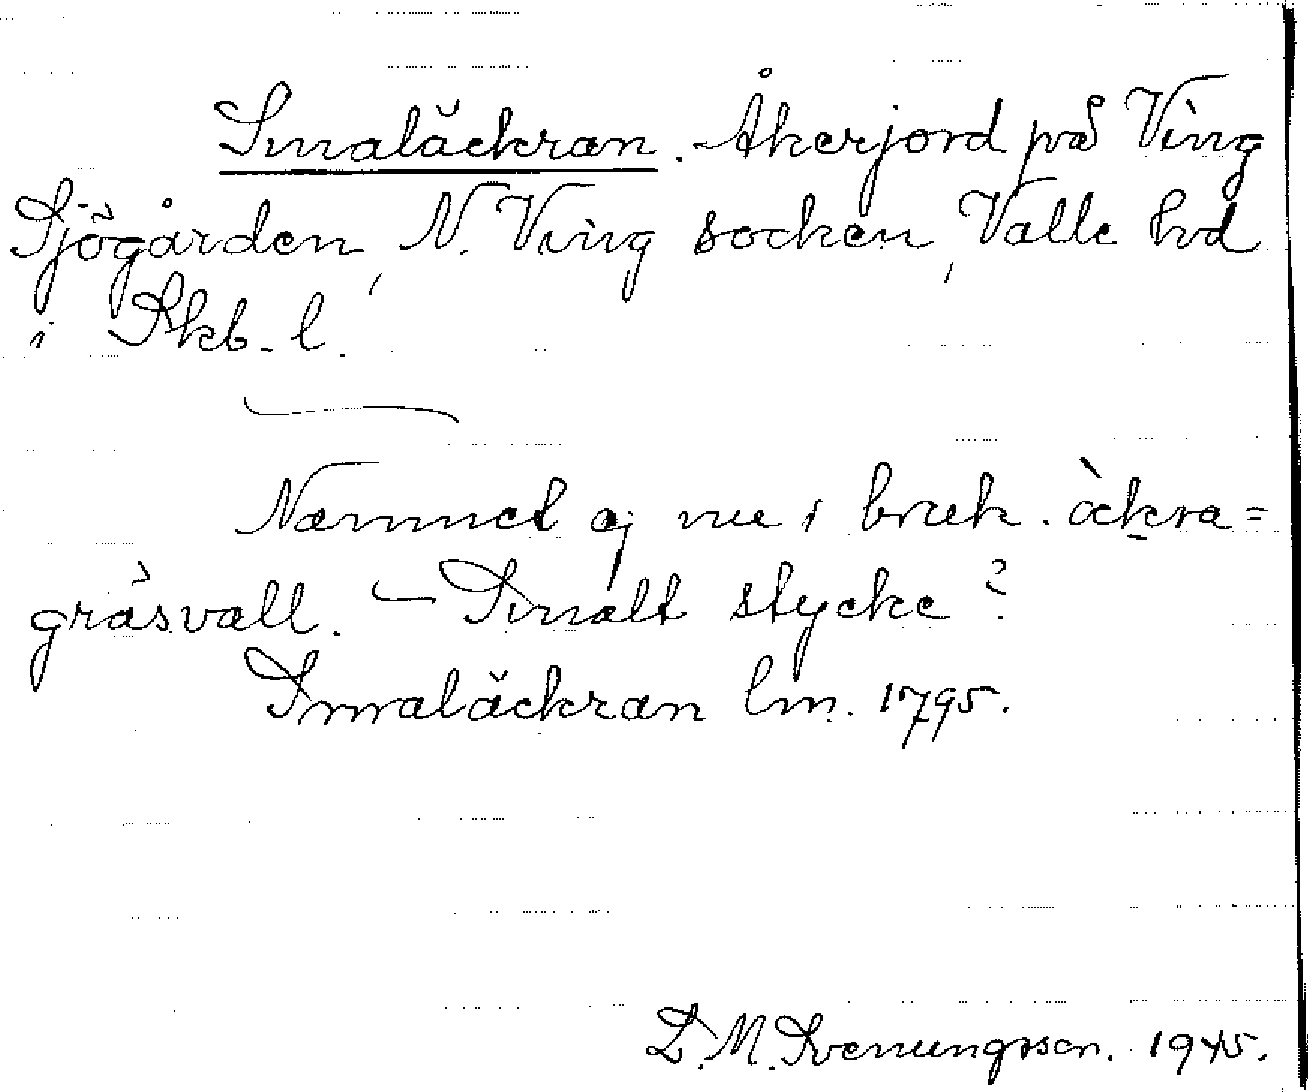 Smaläckran. Åkerjord på Ving
Sjögården, N. Ving socken, Valle hd
i Skb. l.
Namnet ej nu i bruk. àckra=
gräsvall. – Smalt stycke?
Smaläckran lm. 1795.
L. M. Svenungsson. 1945.